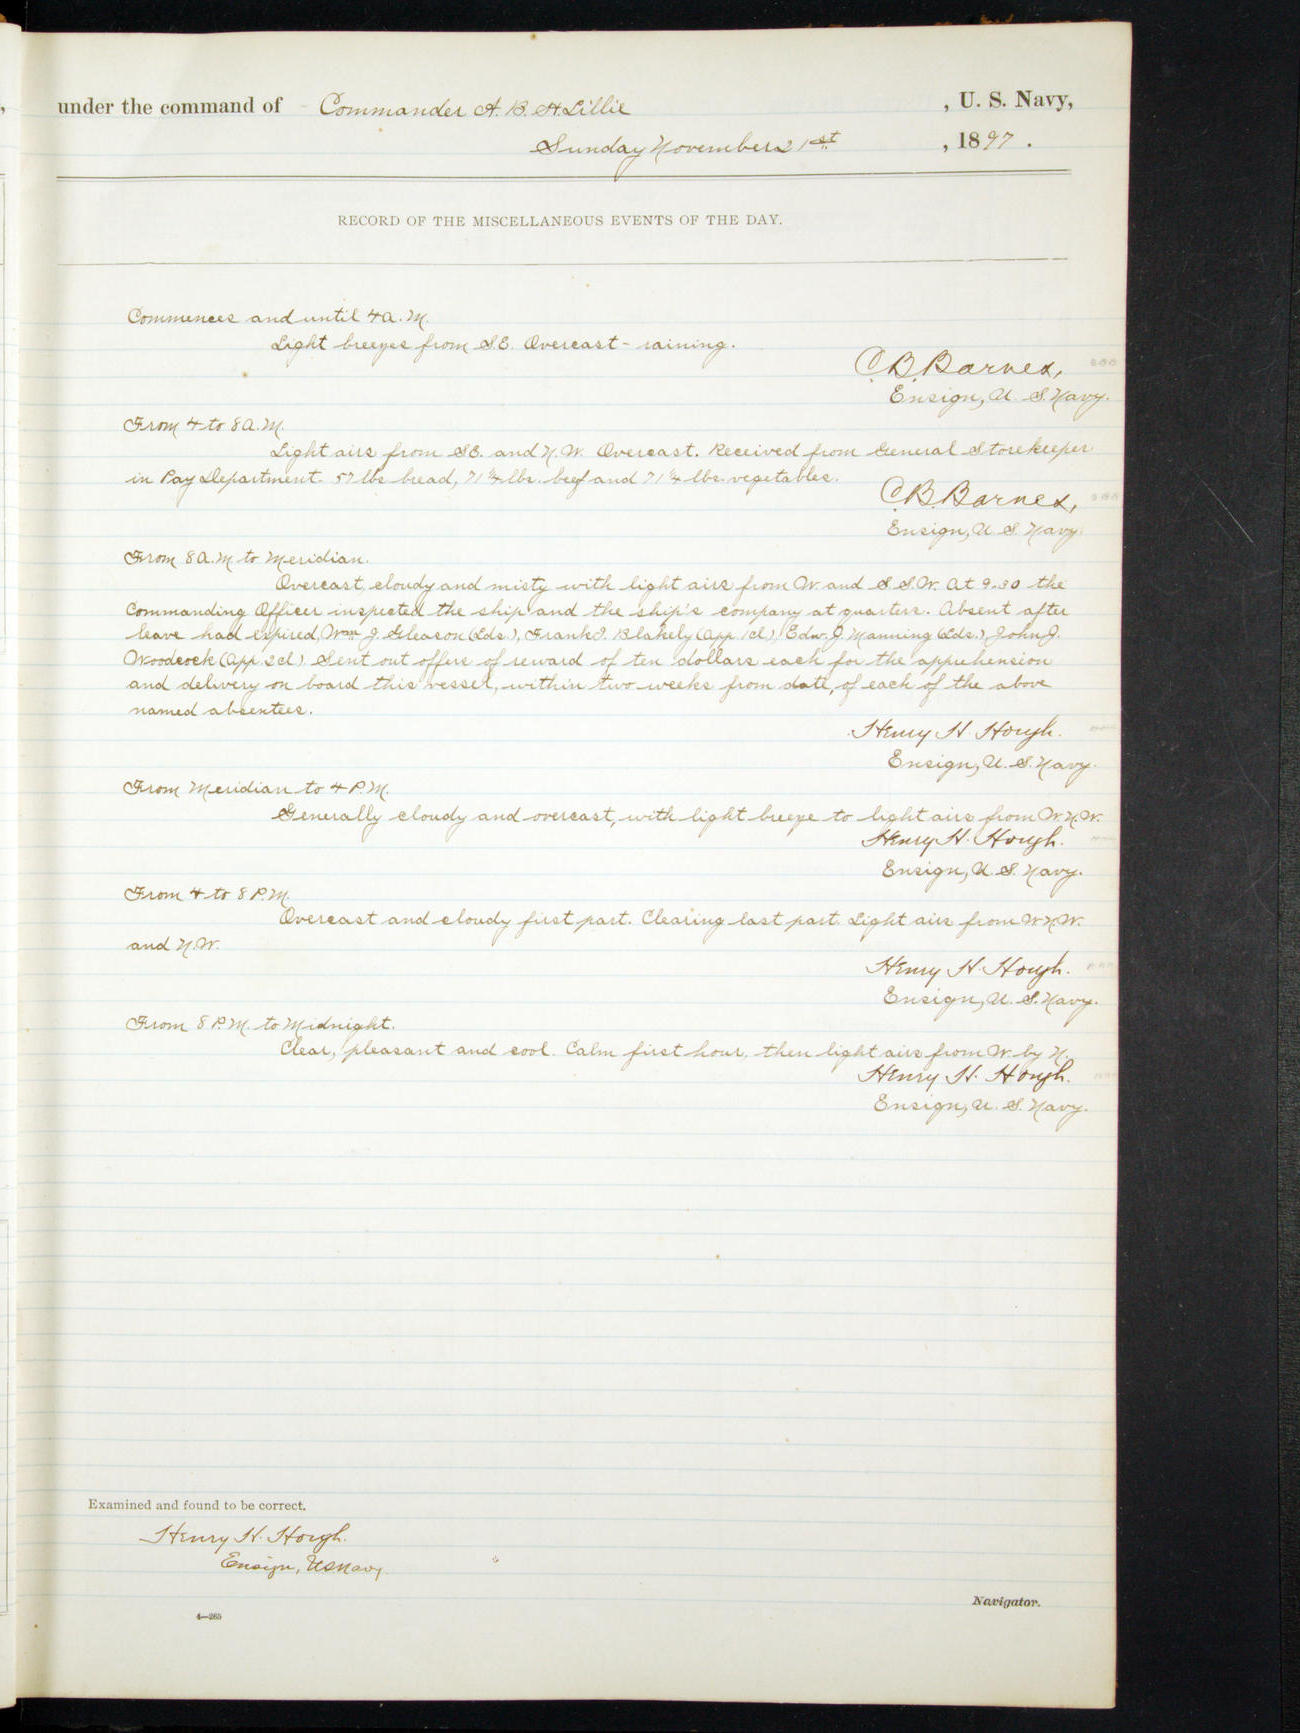 under the command of Commander A. B. H. Lillie, U. S. Navy,
Sunday November 21st, 1897.
RECORD OF THE MISCELLANEOUS EVENTS OF THE DAY.
Commences and until 4 A.M.
Light breezes from S.E. Overcast - raining.
C. B. Barnes,
Ensign, U. S. Navy.
From 4 to 8 A.M.
Light airs from S.E. and N.W. Overcast. Received from General Storekeeper
in Pay Department. 57 lbs bread, 71 1/4 lbs. beef and 71 1/4 lbs. vegetables.
C. B. Barnes,
Ensign, U. S. Navy.
From 8 A.M. to Meridian.
Overcast, cloudy and misty with light airs from W. and S.S.W. At 9.30 the
Commanding Officer inspected the ship and the ship's company at quarters. Absent after
leave had expired, Wm. J. Gleason (Lds.), Frank J. Blakely (App. 1cl), Edw. J. Manning (Lds.), John J.
Woodcock (App. 2cl). Sent out offers of reward of ten dollars each for the apprehension
and delivery on board this vessel, within two weeks from date, of each of the above
named absentees.
Henry H. Hough.
Ensign, U. S. Navy.
From Meridian to 4 P.M.
Generally cloudy and overcast, with light breeze to light airs from W.N.W.
Henry H. Hough.
Ensign, U. S. Navy.
From 4 to 8 P.M.
Overcast and cloudy first part. Clearing last part. Light airs from W.N.W.
and N.W.
Henry H. Hough.
Ensign, U. S. Navy.
From 8 P.M. to Midnight.
Clear, pleasant and cool. Calm first hour, then light airs from W. by N.
Henry H. Hough.
Ensign, U. S. Navy.
Examined and found to be correct.
Henry H. Hough.
Ensign, U S Navy
Navigator.
4—265